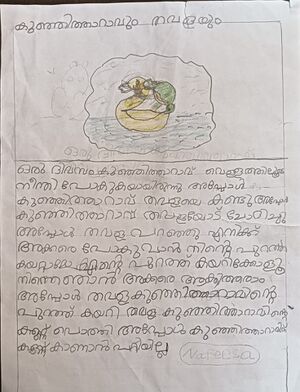 കുഞ്ഞിത്താറാവും തവളയും
ഒരു ദിവസം കുഞ്ഞിത്താറാവ് വെള്ളത്തിലൂടെ
നീന്തി പോകുകയായിരുന്നു അപ്പോൾ
കുഞ്ഞിത്താറാവ് തവളയെ കണ്ടു അപ്പോൾ
കുഞ്ഞിത്താറാവ് തവളയോട് ചോദിച്ചു
അപ്പോൾ തവള പറഞ്ഞു എനിക്ക്
അക്കരെ പോകുവാൻ നിന്റെ പുറത്ത്
കയറ്റാമോ എന്റെ പുറത്ത് കയറിക്കോളൂ
നിന്നെ ഞാൻ അക്കരെ ആക്കിത്തരാം
അപ്പോൾ തവള കുഞ്ഞിത്താറാവിന്റെ
പുറത്ത് കയറി തവള കുഞ്ഞിത്താറാവിന്റെ
കണ്ണ് പൊത്തി അപ്പോൾ കുഞ്ഞിത്താറാവിന്
കണ്ണ് കാണാൻ പറ്റിയില്ല